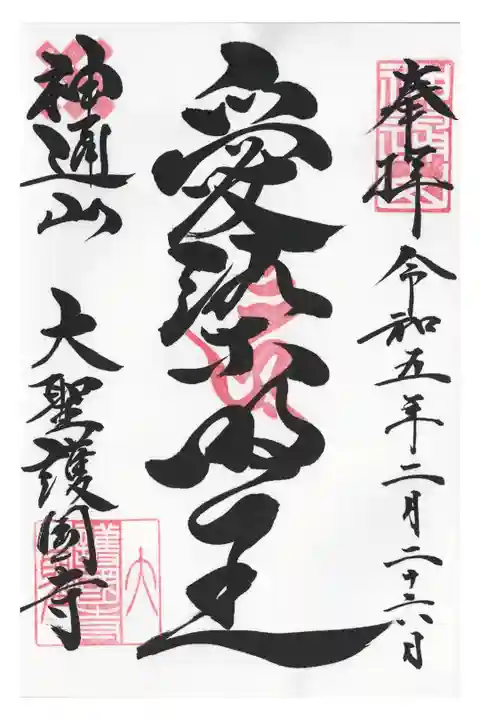 奉拝 令和五年二月二十六日
愛染明王
神通山 大聖護国寺